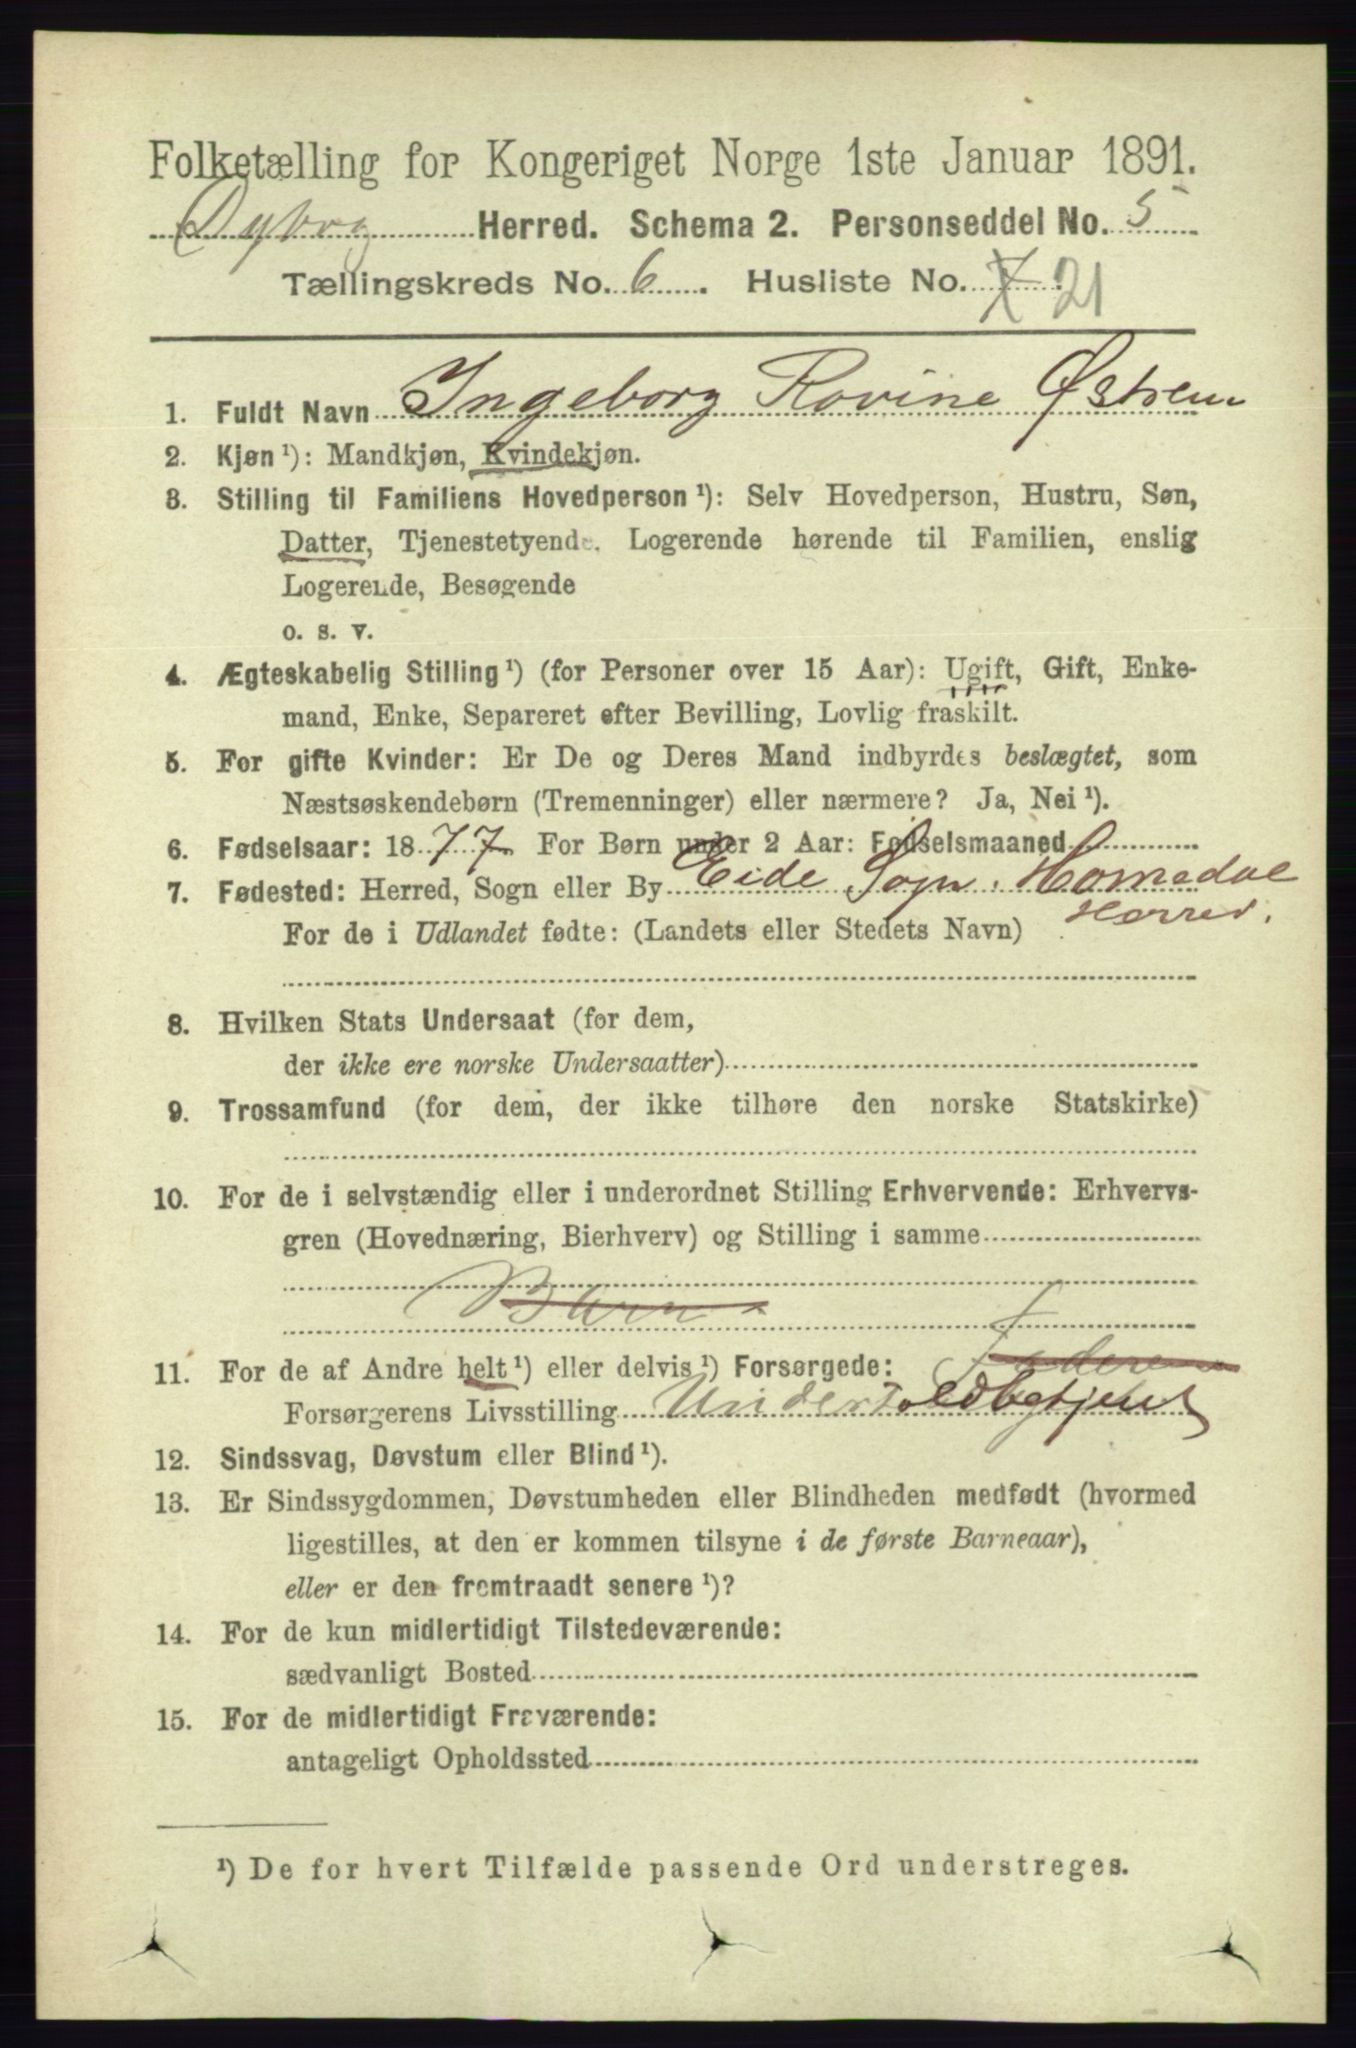 Folketælling for Kongeriget Norge 1ste Januar 1891.
Dybvog Herred. Schema 2. Personseddel No. 5
Tællingskreds No. 6. Husliste No. 7 21
1. Fuldt Navn Ingeborg Rovine Østrem
2. Kjøn¹): Mandkjøn, Kvindekjøn.
3. Stilling til Familiens Hovedperson¹): Selv Hovedperson, Hustru, Søn,
Datter, Tjenestetyende, Logerende hørende til Familien, enslig
Logerende, Besøgende
o. s. v.
4. Ægteskabelig Stilling¹) (for Personer over 15 Aar): Ugift, Gift, Enke-
mand, Enke, Separeret efter Bevilling, Lovlig fraskilt.
5. For gifte Kvinder: Er De og Deres Mand indbyrdes beslægtet, som
Næstsøskendebørn (Tremenninger) eller nærmere? Ja, Nei¹).
6. Fødselsaar: 1877 For Børn under 2 Aar: Fødselsmaaned
7. Fødested: Herred, Sogn eller By Eide Sogn, Homedal
Herred.
For de i Udlandet fødte: (Landets eller Stedets Navn)
8. Hvilken Stats Undersaat (for dem,
der ikke ere norske Undersaatter)
9. Trossamfund (for dem, der ikke tilhøre den norske Statskirke)
10. For de i selvstændig eller i underordnet Stilling Erhvervende: Erhvervs-
gren (Hovednæring, Bierhverv) og Stilling i samme
Barn
11. For de af Andre helt¹) eller delvis¹) Forsørgede: Faderen
Forsørgerens Livsstilling Undertoldbetjent
12. Sindssvag, Døvstum eller Blind¹).
13. Er Sindssygdommen, Døvstumheden eller Blindheden medfødt (hvormed
ligestilles, at den er kommen tilsyne i de første Barneaar),
eller er den fremtraadt senere¹)?
14. For de kun midlertidigt Tilstedeværende:
sædvanligt Bosted
15. For de midlertidigt Fraværende:
antageligt Opholdssted
¹) De for hvert Tilfælde passende Ord understreges.